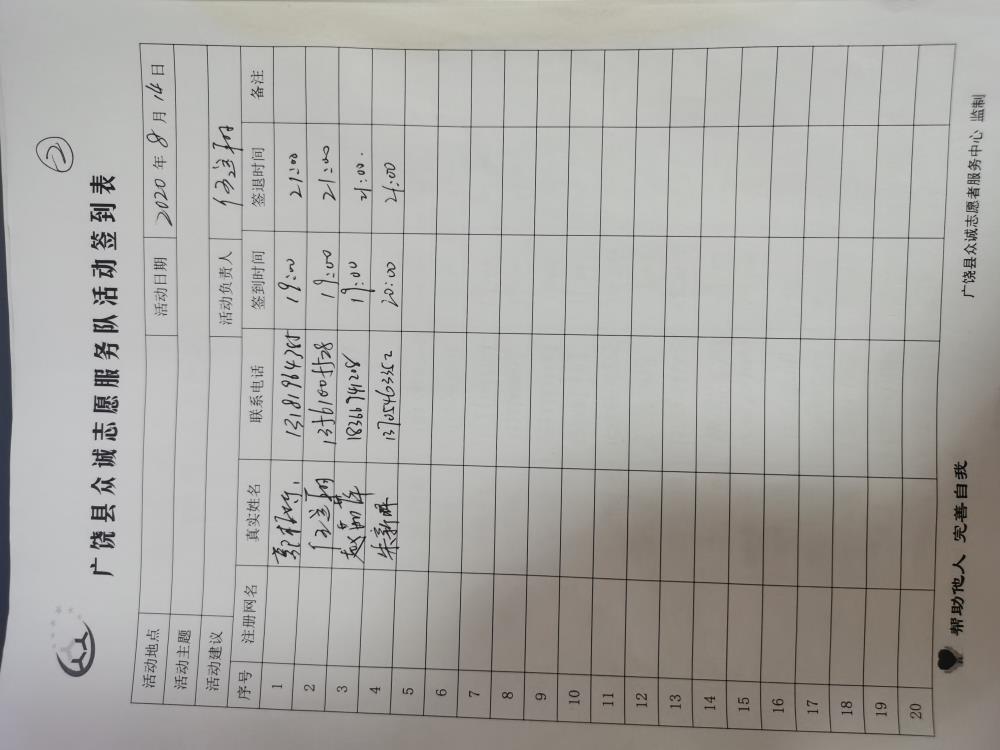 ②
广饶县众诚志愿服务队活动签到表
活动地点 活动日期 2020年8月14日
活动主题
活动建议 活动负责人
序号 注册网名 真实姓名 联系电话 签到时间 签退时间 备注
1 13181964785 19:00 21:00
2 13561005528 19:00 21:00
3 18366741208 19:00 21:00.
4 朱新 13705463352 20:00 21:00
5
6
7
8
9
10
11
12
13
14
15
16
17
18
19
20
帮助他人 完善自我
广饶县众诚志愿者服务中心 监制